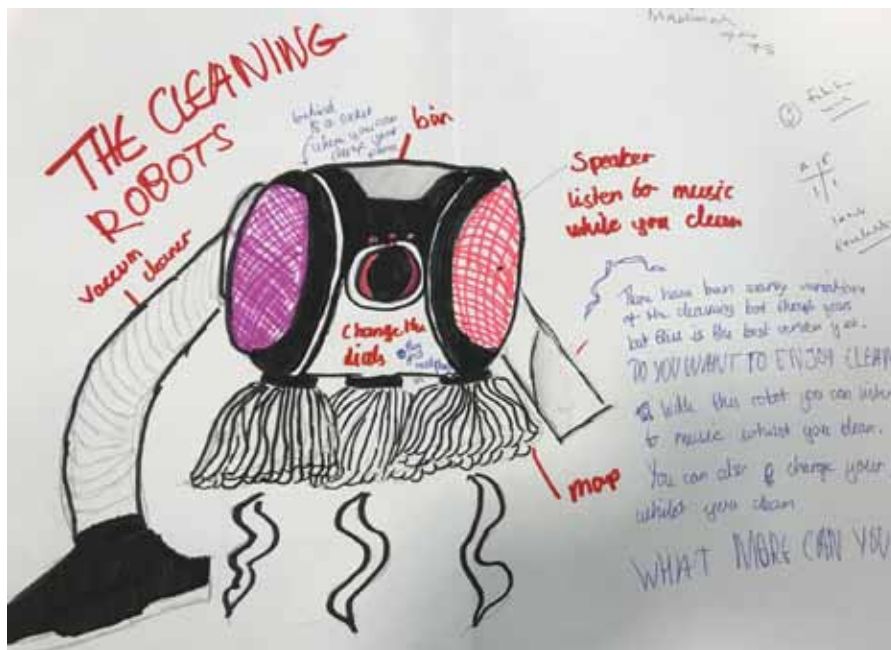 THE CLEANING
ROBOTS
behind
is a socket
where you can
charge your
phone
bin
Speaker
listen to music
while you clean
vaccum
cleaner
Change the
dials
mop
There have been many variations
of the cleaning bot years
but this is the best version yet.
DO YOU WANT TO ENJOY CLEAN
With this robot you can listen
to music whilst you clean.
You can also charge your
whilst you clean
WHAT MORE CAN YOU